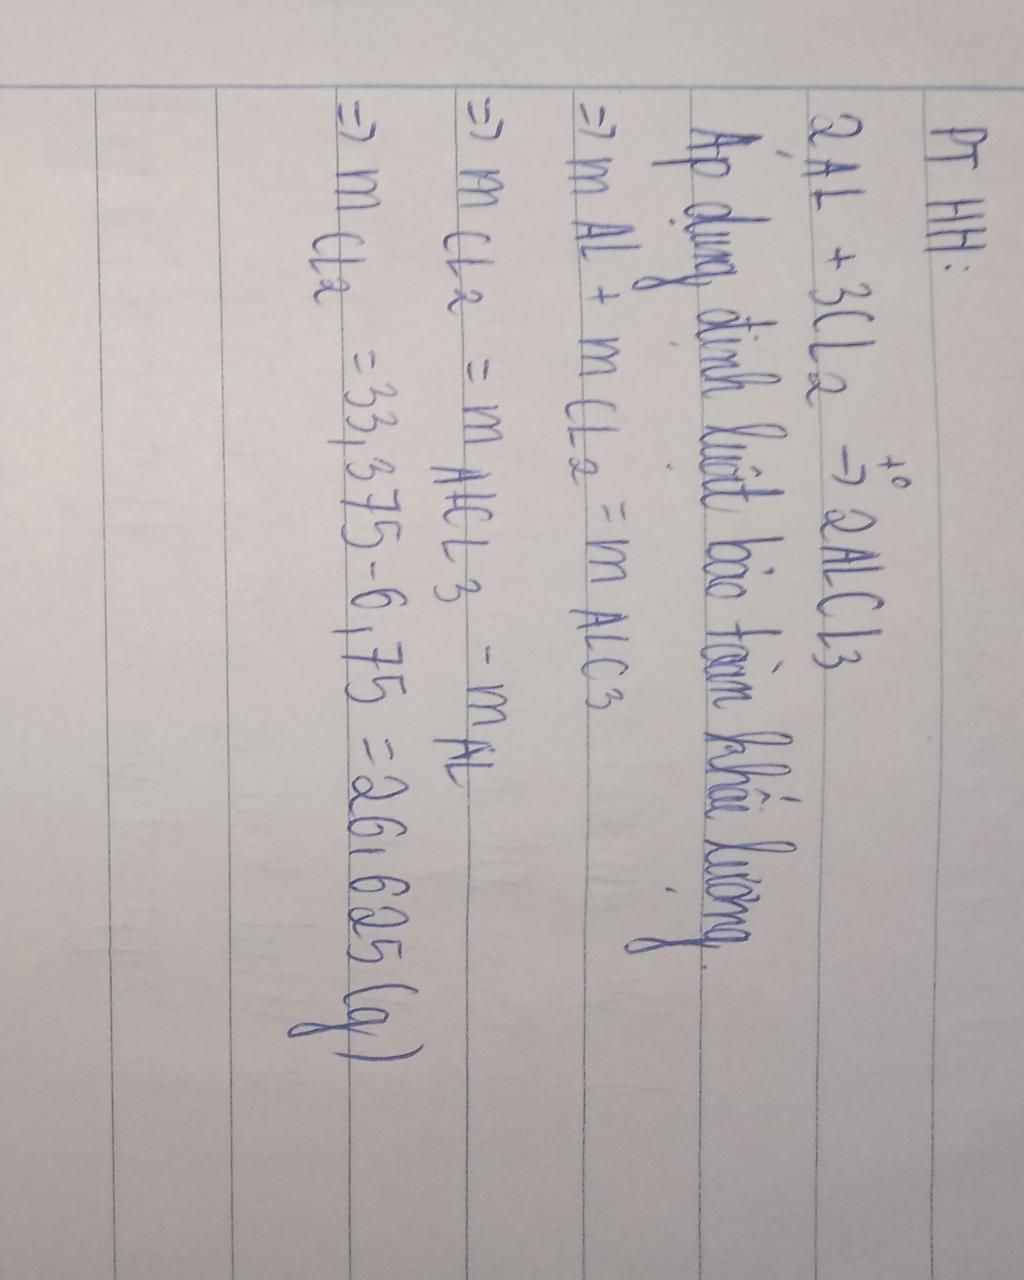 PT HH:
2AL + 3CL2 t° → 2ALCL3
Áp dụng định luật bảo toàn khối lượng.
=> m AL + m CL2 = m ALC3
=> m CL2 = m AHCL3 - m AL
=> m CL2 = 33,375 - 6,75 = 26,625 (g)